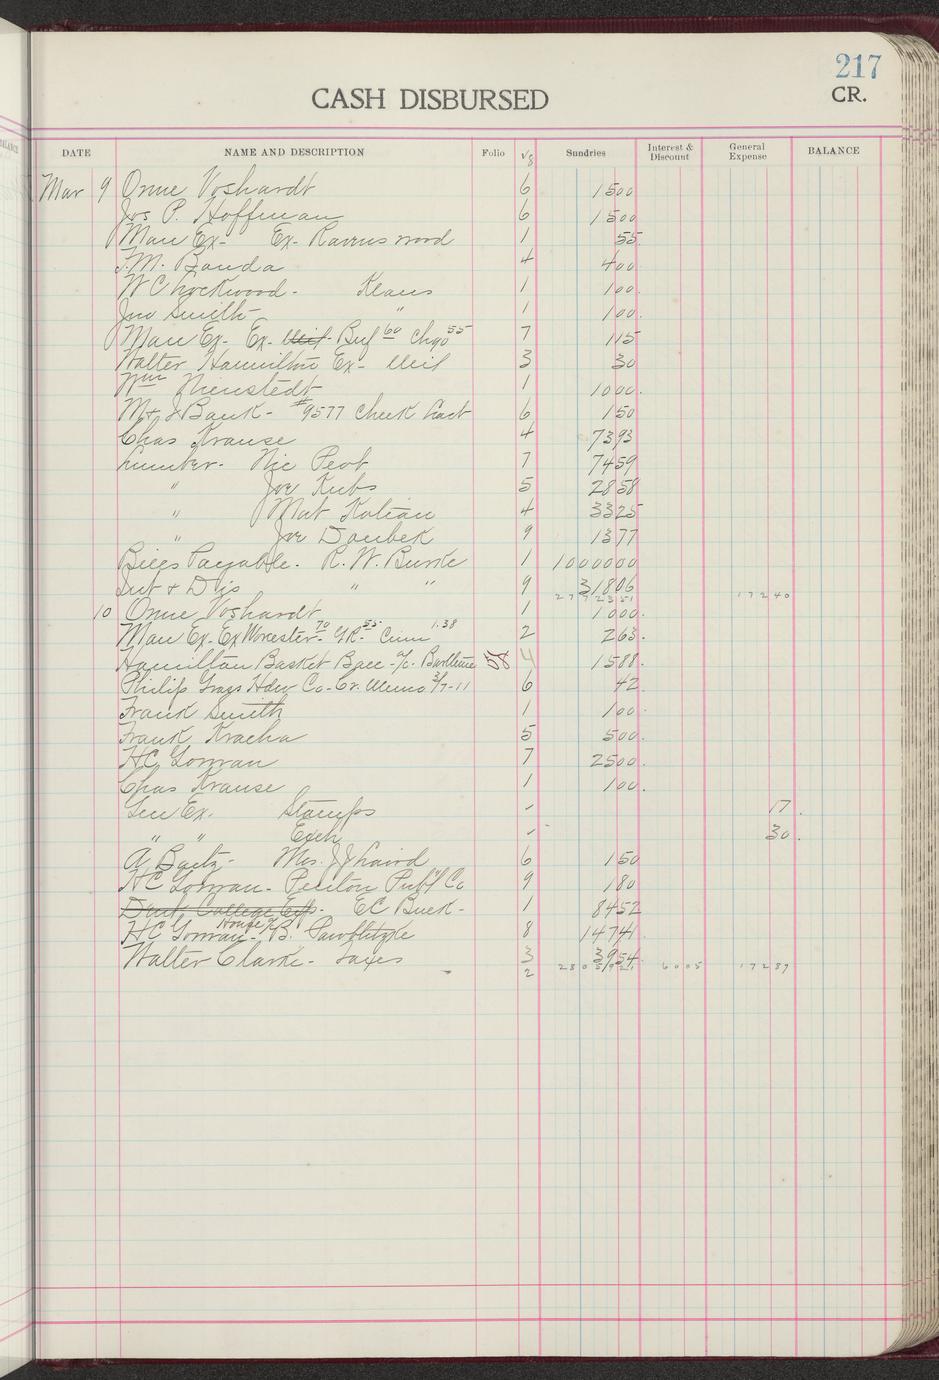 217
CASH DISBURSED CR.
DATE NAME AND DESCRIPTION Folio V8 Sundries Interest & Discount General Expense BALANCE
Mar 9 Orme Voshardt 6 1500
Jos P. Hoffman 6 1500
Man Ex- Ex- Ravenswood 1 55
J.M. Banda 4 400
W C Lockwood - Klaus 1 100.
Jno Smith - " 1 100.
Man Ex- Ex- Meil Buf 60 Chgo 55 7 115
Walter Hamilton Ex- Meil 3 30
Wm Nienstedt 1 1000.
M & J Bank - #9577 Check Lact 6 150
Chas Krause 4 7393
Lumber - Nic Peot 7 7459
" Joe Kubs 5 2858
" Mat Kolian 4 3325
" Joe Doubek 9 1377
Bills Payable - R. W. Burke 1 1000000
Int + Dis " " 9 31806
2772351 17240
10 Orme Voshardt 1 1000.
Man Ex- Ex Worcester 70 G.R. 55 Cinn 1.38 2 263.
Hamilton Basket Ball a/c - 58 4 1588.
Philip Gross Hdw Co - Cr. Memo 3/7-11 6 42
Frank Smith 1 100.
Frank Kracha 5 500.
HC Gorman 7 2500.
Chas Krause 1 100.
Gen Ex. Stamps - 17.
" " Exch - 30.
A Baetz - Mrs. J J Laird 6 150
HC Gorman - Penton Pub'l Co 9 180
Dent College Exp. - EC Buck - 1 8452
House of
HC Gorman - B. Pawlitzke 8 14741
Walter Clark - Taxes 3 3954
2 2805921 6005 17287